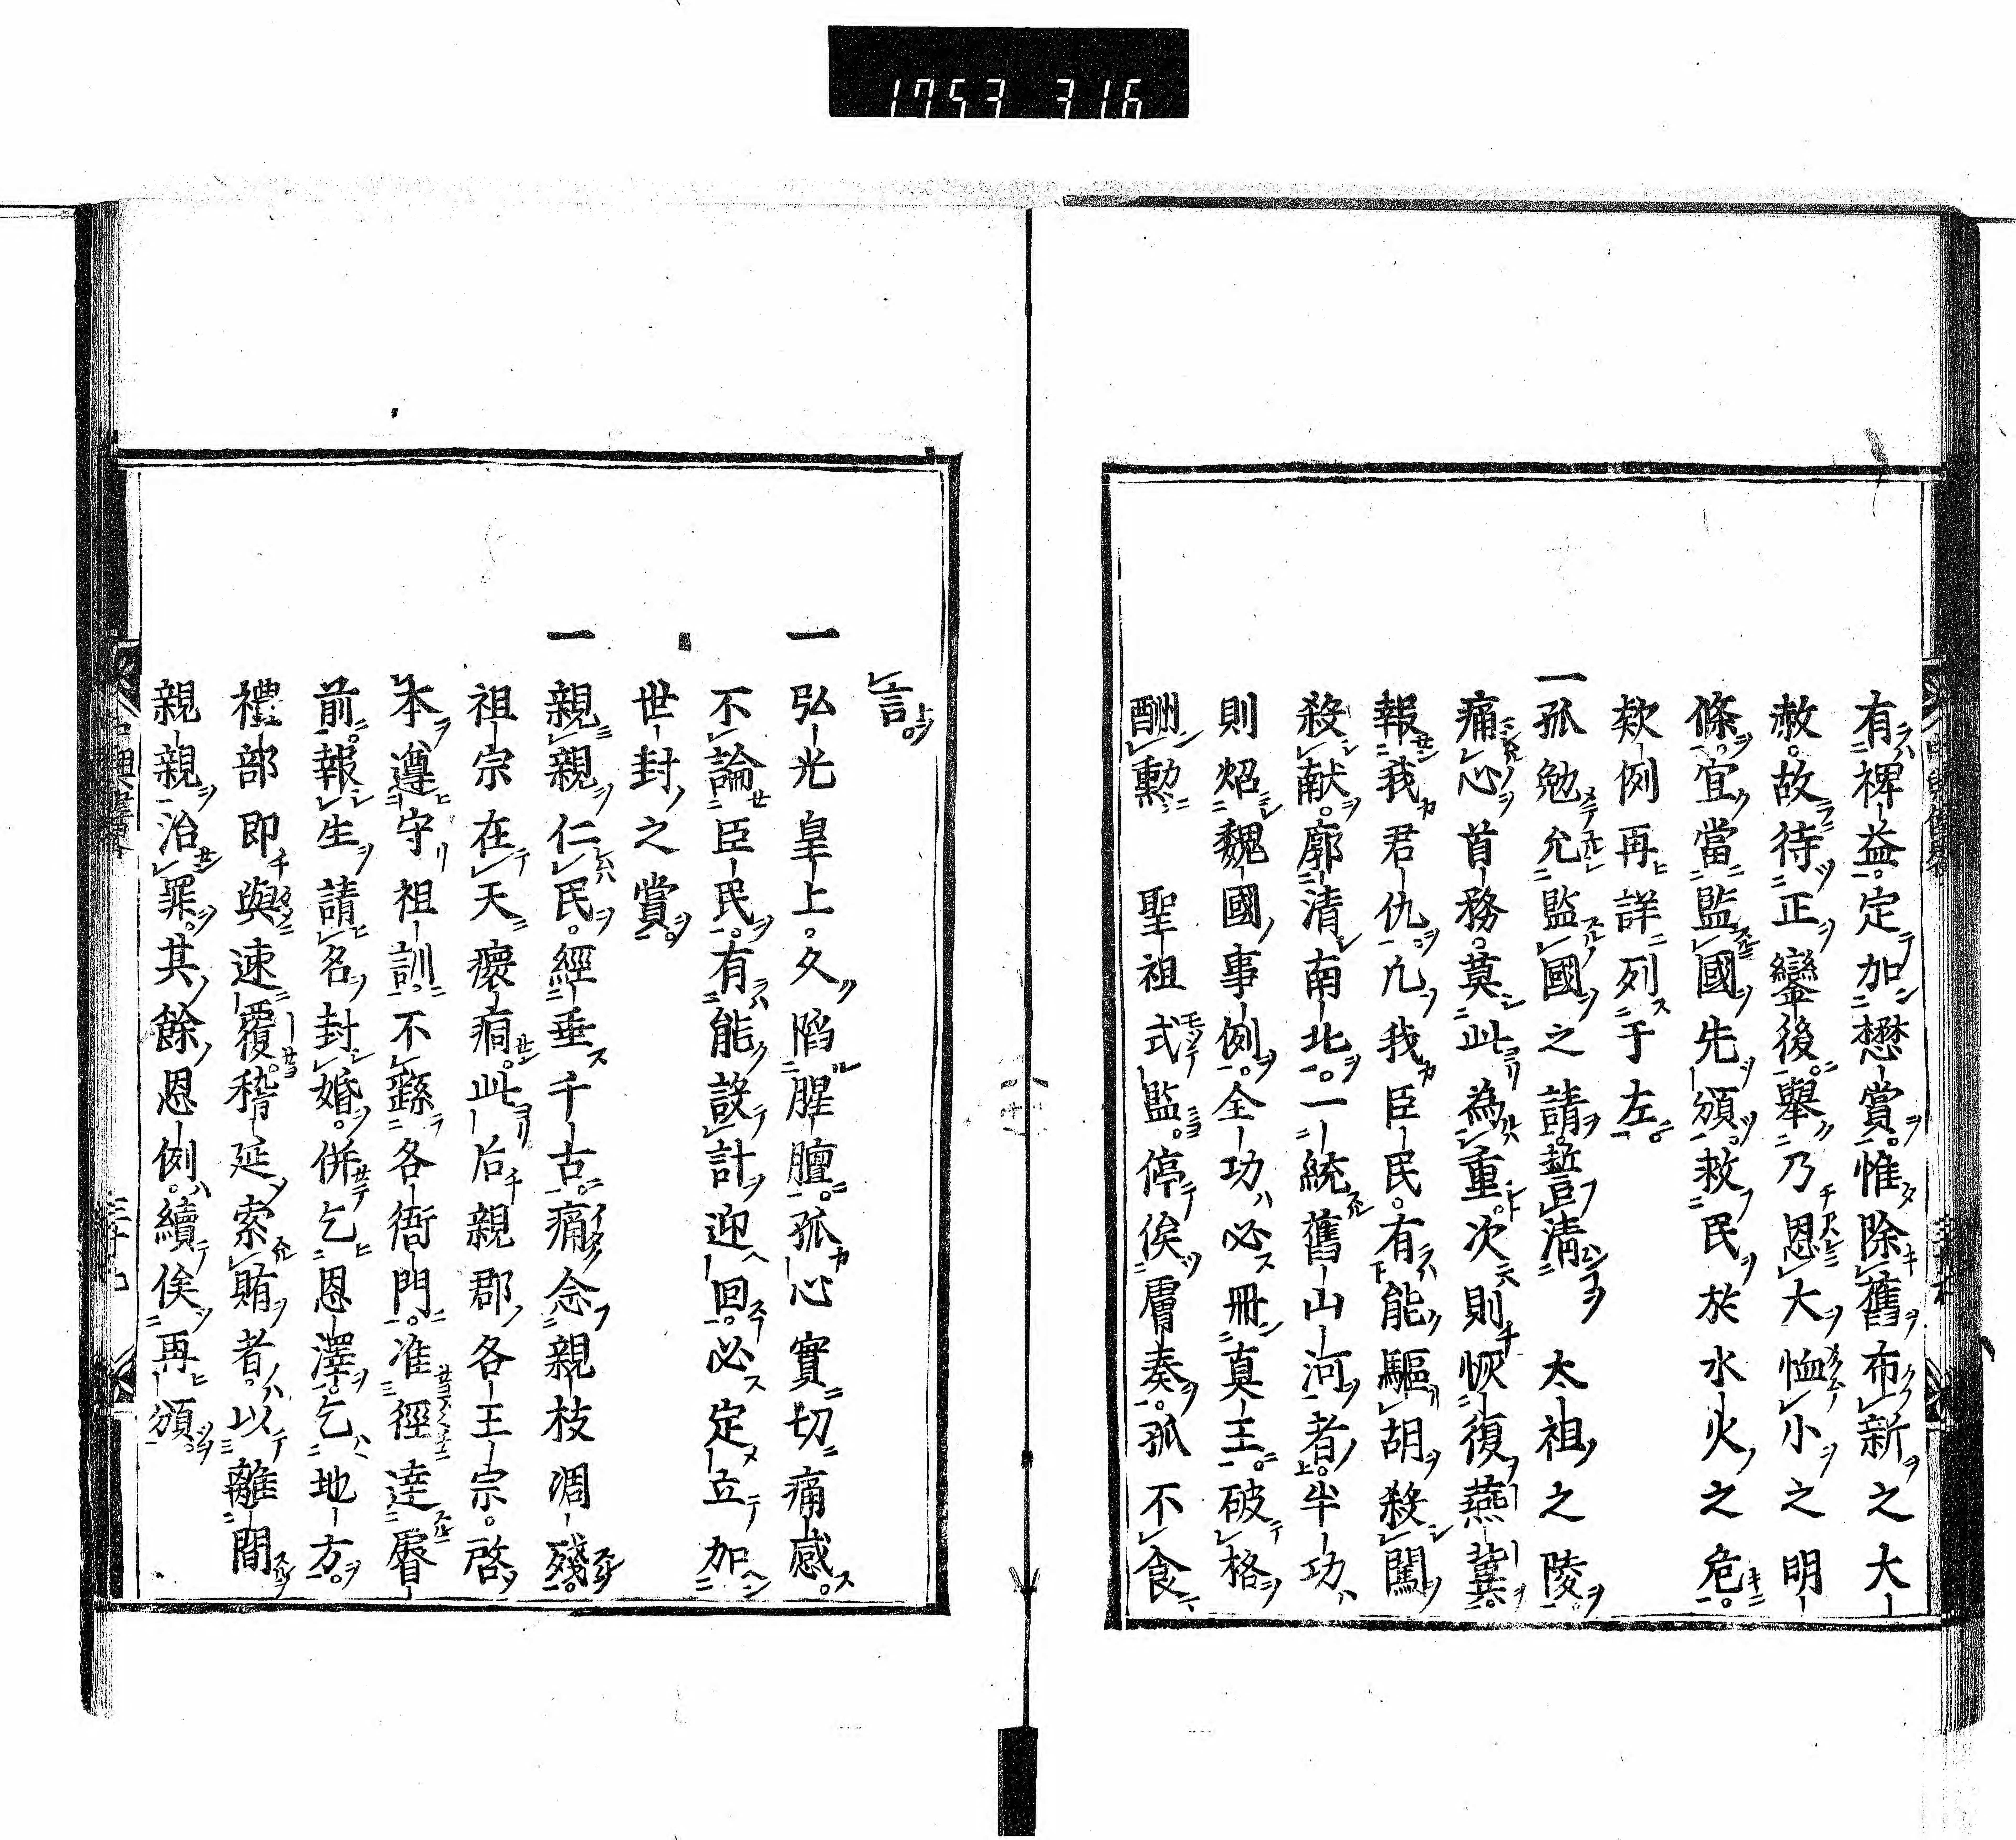 1753 316
有裨益。定加懋賞。惟除舊布新之大
赦。故待正鑾後。舉乃恩大恤小之明
條。宜當監國先頒。救民於水火之危。
欵例再詳列于左。
一孤勉允監國之請。誓清 太祖之陵。
痛心首務。莫此為重。次則恢復燕冀。
報我君仇。凢我臣民。有能驅胡殺闖
殺献。廓清南北。一統舊山河者。半功
則炤魏國事例。全功必冊真王。破格
酬勳 聖祖式監。停俟膚奏。孤不食
言。
一弘光皇上。久陷腥膻。孤心實切痛感。
不論臣民。有能設計迎回。必定立加
世封之賞。
一親親仁民。經垂千古。痛念親枝凋殘。
祖宗在天瘝痌。此后親郡各王宗。啓
本遵守祖訓。不繇各衙門。准徑達睿
前。報生請名封婚。併乞恩澤。乞地方。
禮部即與速覆。稽延索賄者。以離間
親親治罪。其餘恩例。續俟再頒。